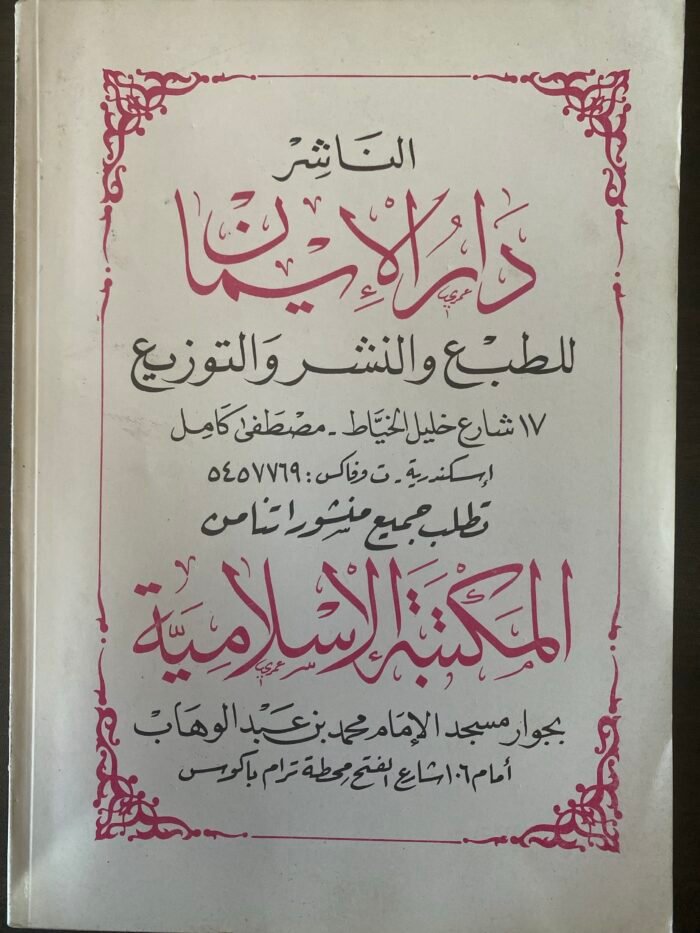 النَاشِر
دَارُ الإِيمَان
للطبْع والنشر وَالتوزيع
١٧ شارع خليل الخيَّاط - مصْطَفى كَامِل
إسكندرية - ت وفاكس : ٥٤٥٧٧٦٩
تطلب جميع منشوراتنا من
المَكْتَبَة الإِسْلَامِيَّة
بجوار مسجد الإمَام محمد بن عَبْد الوهَابْ
أمام ١٠٦ شارع الفتح محطة ترام باكوس